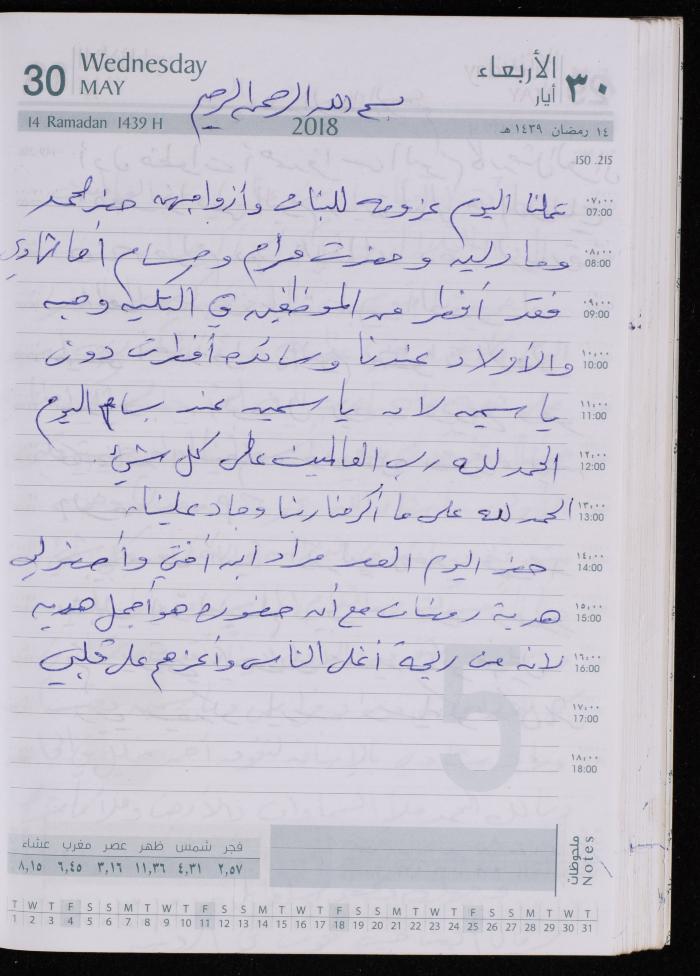 30 Wednesday
MAY
الأربعاء ٣٠
أيار
بسم الله الرحمن الرحيم
14 Ramadan 1439 H
2018
١٤ رمضان ١٤٣٩ هـ
ISO .215
٠٧,٠٠
07:00
عملنا اليوم عزومه للبنات وأزواجهن حضر محمد
٠٨,٠٠
08:00
ومارلين وحضرت مرام وحسام أما
٠٩,٠٠
09:00
فقد أفطر مع الموظفين في الكليه وهبه
١٠,٠٠
10:00
والأولاد عندنا وسائده أفطرت دون
١١,٠٠
11:00
ياسمين لان ياسمين عند بسام اليوم
١٢,٠٠
12:00
الحمد لله رب العالمين على كل شيئ
١٣,٠٠
13:00
الحمد لله على ما أكرمنا ربنا وجاد علينا.
١٤,٠٠
14:00
حضر اليوم العصر مراد ابن أختي وأحضر لي
١٥,٠٠
15:00
هدية رمضان مع أن حضوره هو أجمل هديه
١٦,٠٠
16:00
لانه من ريحة أغلى الناس وأعزهم على قلبي
١٧,٠٠
17:00
١٨,٠٠
18:00
5
فجر شمس ظهر عصر مغرب عشاء
٢,٥٧ ٤,٣١ ١١,٣٦ ٣,١٦ ٦,٤٥ ٨,١٥
ملحوظات
Notes
T W T F S S M T W T F S S M T W T F S S M T W T F S S M T W T
1 2 3 4 5 6 7 8 9 10 11 12 13 14 15 16 17 18 19 20 21 22 23 24 25 26 27 28 29 30 31